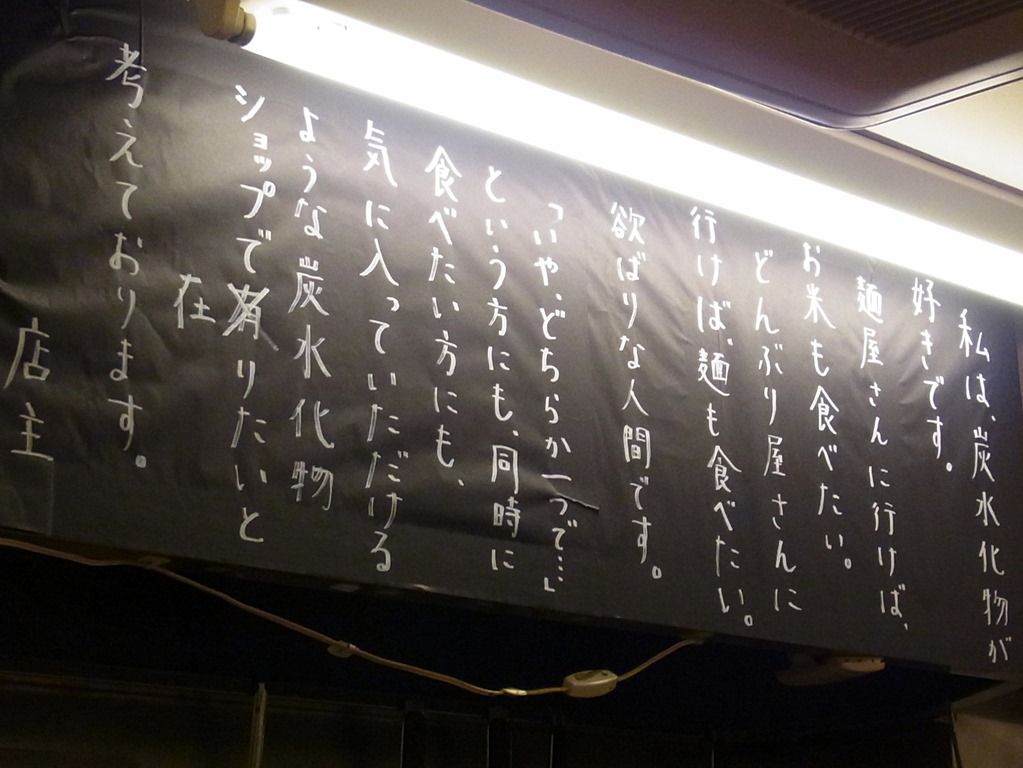 私は、炭水化物が
好きです。
麺屋さんに行けば、
お米も食べたい。
どんぶり屋さんに
行けば、麺も食べたい。
欲ばりな人間です。
「いや、どちらか一つで…」
という方にも、同時に
食べたい方にも、
気に入っていただける
ような炭水化物
ショップで有りたいと
在
考えております。
店主